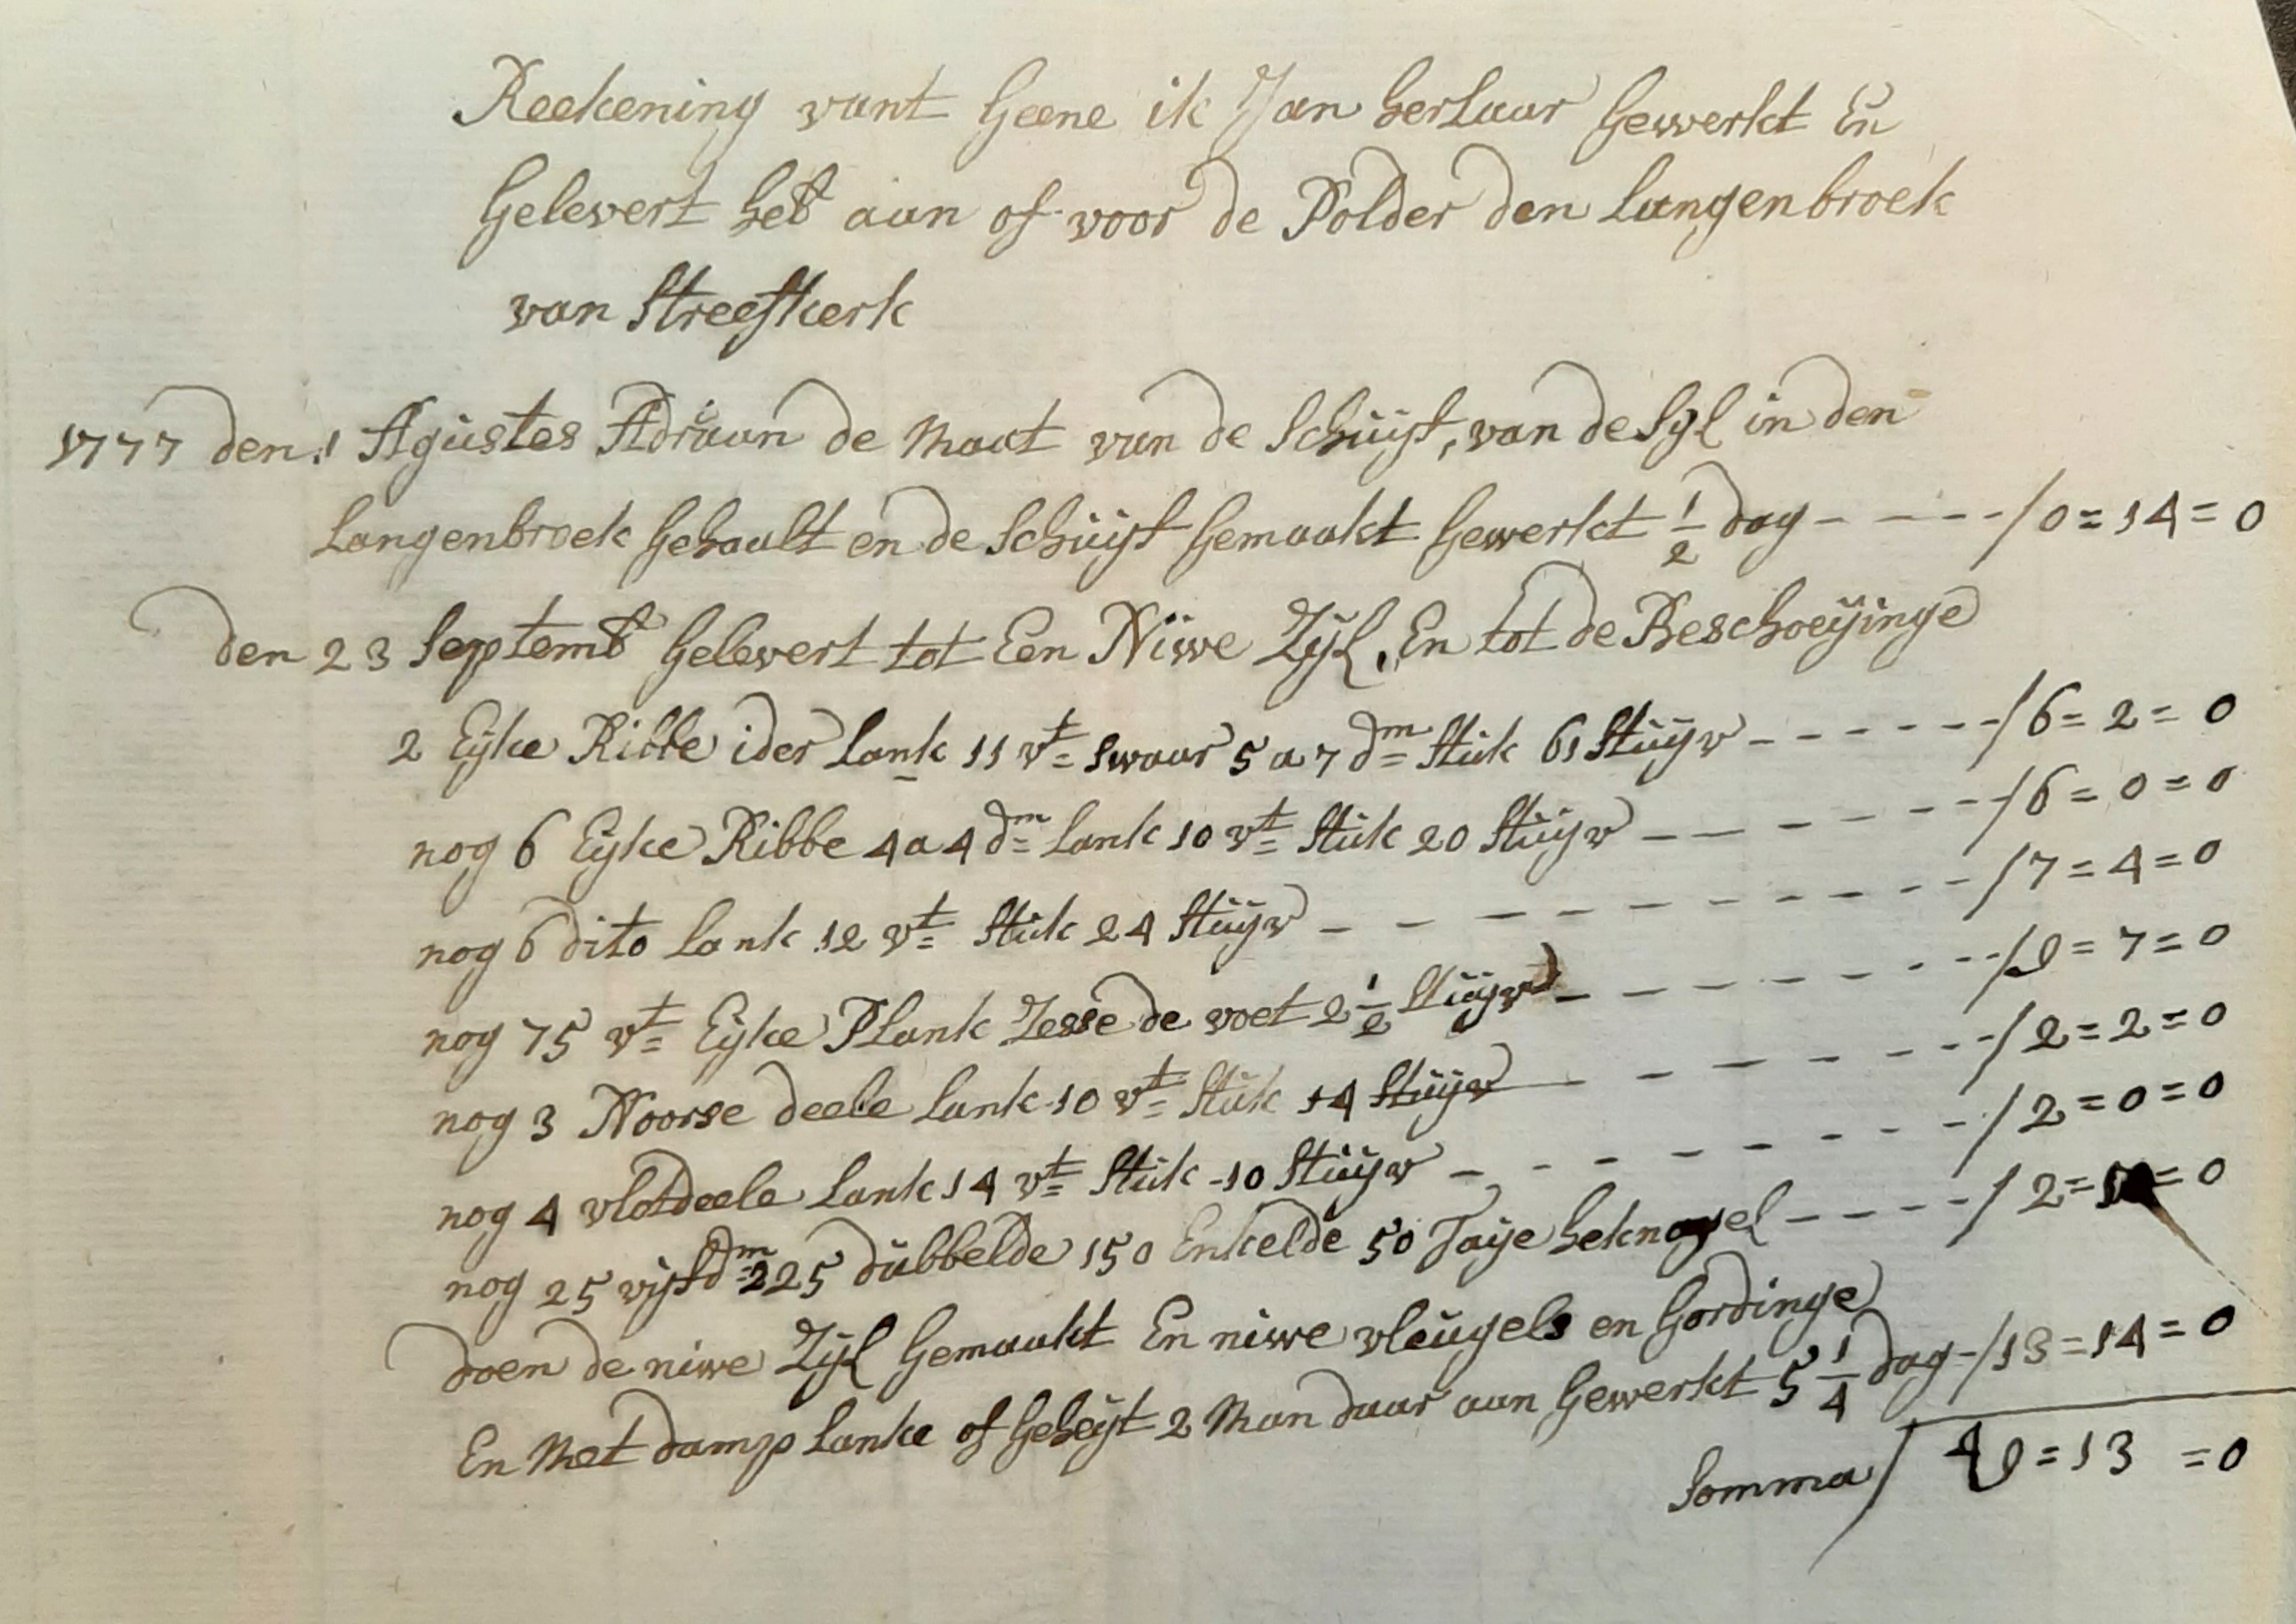 Reekening vant Geene ik Jan herlaar Gewerkt En
Gelevert heb aan of voor de Polder den Langenbroek
van Streefkerk
1777 den 1 Agustes Adriaan de Maat van de Schuijt, van de Sijl in den
Langenbroek Gehaalt en de Schuijt Gemaakt Gewerkt 1/2 dag - - - - - / 0 = 14 = 0
den 23 Septemb Gelevert tot Een Niwe Zijl, En tot de Beschoeijinge
2 Eijke Ribbe ider Lank 11 vt= swaar 5 a 7 dm= Stuk 61 Stuijv - - - - - - / 6 = 2 = 0
nog 6 Eijke Ribbe 4 a 4 dm= Lank 10 vt= Stuk 20 Stuijv - - - - - - - / 6 = 0 = 0
nog 6 dito Lank 12 vt= Stuk 24 Stuijv - - - - - - - - - - / 7 = 4 = 0
nog 75 vt= Eijke Plank Zesse de voet 2 1/2 Stuijv - - - - - - - / 9 = 7 = 0
nog 3 Noorse deele Lank 10 vt= Stuk 14 Stuijv - - - - - - / 2 = 2 = 0
nog 4 vlotdeele Lank 14 vt= Stuk 10 Stuijv - - - - - - - - / 2 = 0 = 0
nog 25 vijfdm= 225 dubbelde 150 Enkelde 50 Taije heknagel - - - - / 2 = = 0
doen de niwe Zijl Gemaakt En niwe vleugels en Gordinge
En Met damp Lanke of Geheijt 2 Man daar aan Gewerkt 5 1/4 dag - / 13 = 14 = 0
Somma / 49 = 13 = 0